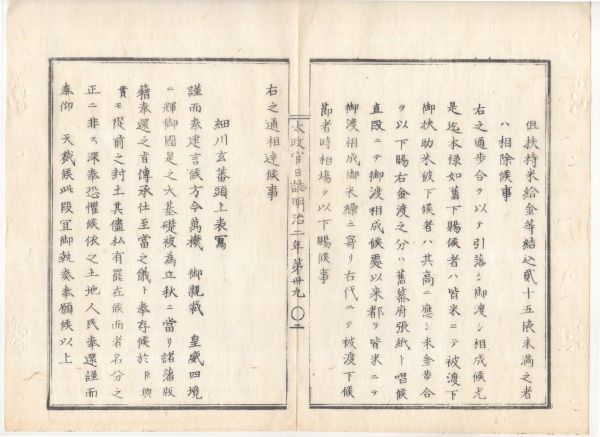 但扶持米給金等結込貳十五俵未満之者
ハ相除候事
右之通歩合ヲ以テ引落シ御渡シ相成候尤
是迄本禄如舊下賜候者ハ皆米ニテ被渡下
御扶助米被下候者ハ其高ニ應シ米金歩合
ヲ以下賜右金渡之分ハ舊幕府張紙ト唱候
直段ニテ御渡相成候處以来都テ皆米ニテ
御渡相成御米繰ニ寄リ右代ニテ被渡下候
節者時相場ヲ以下賜候事
太政官日誌明治二年第卅九 〇二
右之通相達候事
細川玄蕃頭上表寫
謹而奉建言候方今萬機 御親裁 皇威四境
ニ輝御國是之大基礎被為立秋ニ當リ諸藩版
籍奉還之旨傳承仕至當之儀ト奉存候於
貫モ従前之封土其儘私有罷在候而者名分之
正ニ非ス深奉恐懼候依之土地人民奉還謹而
奉仰 天裁候此段宜御執奏奉願候以上